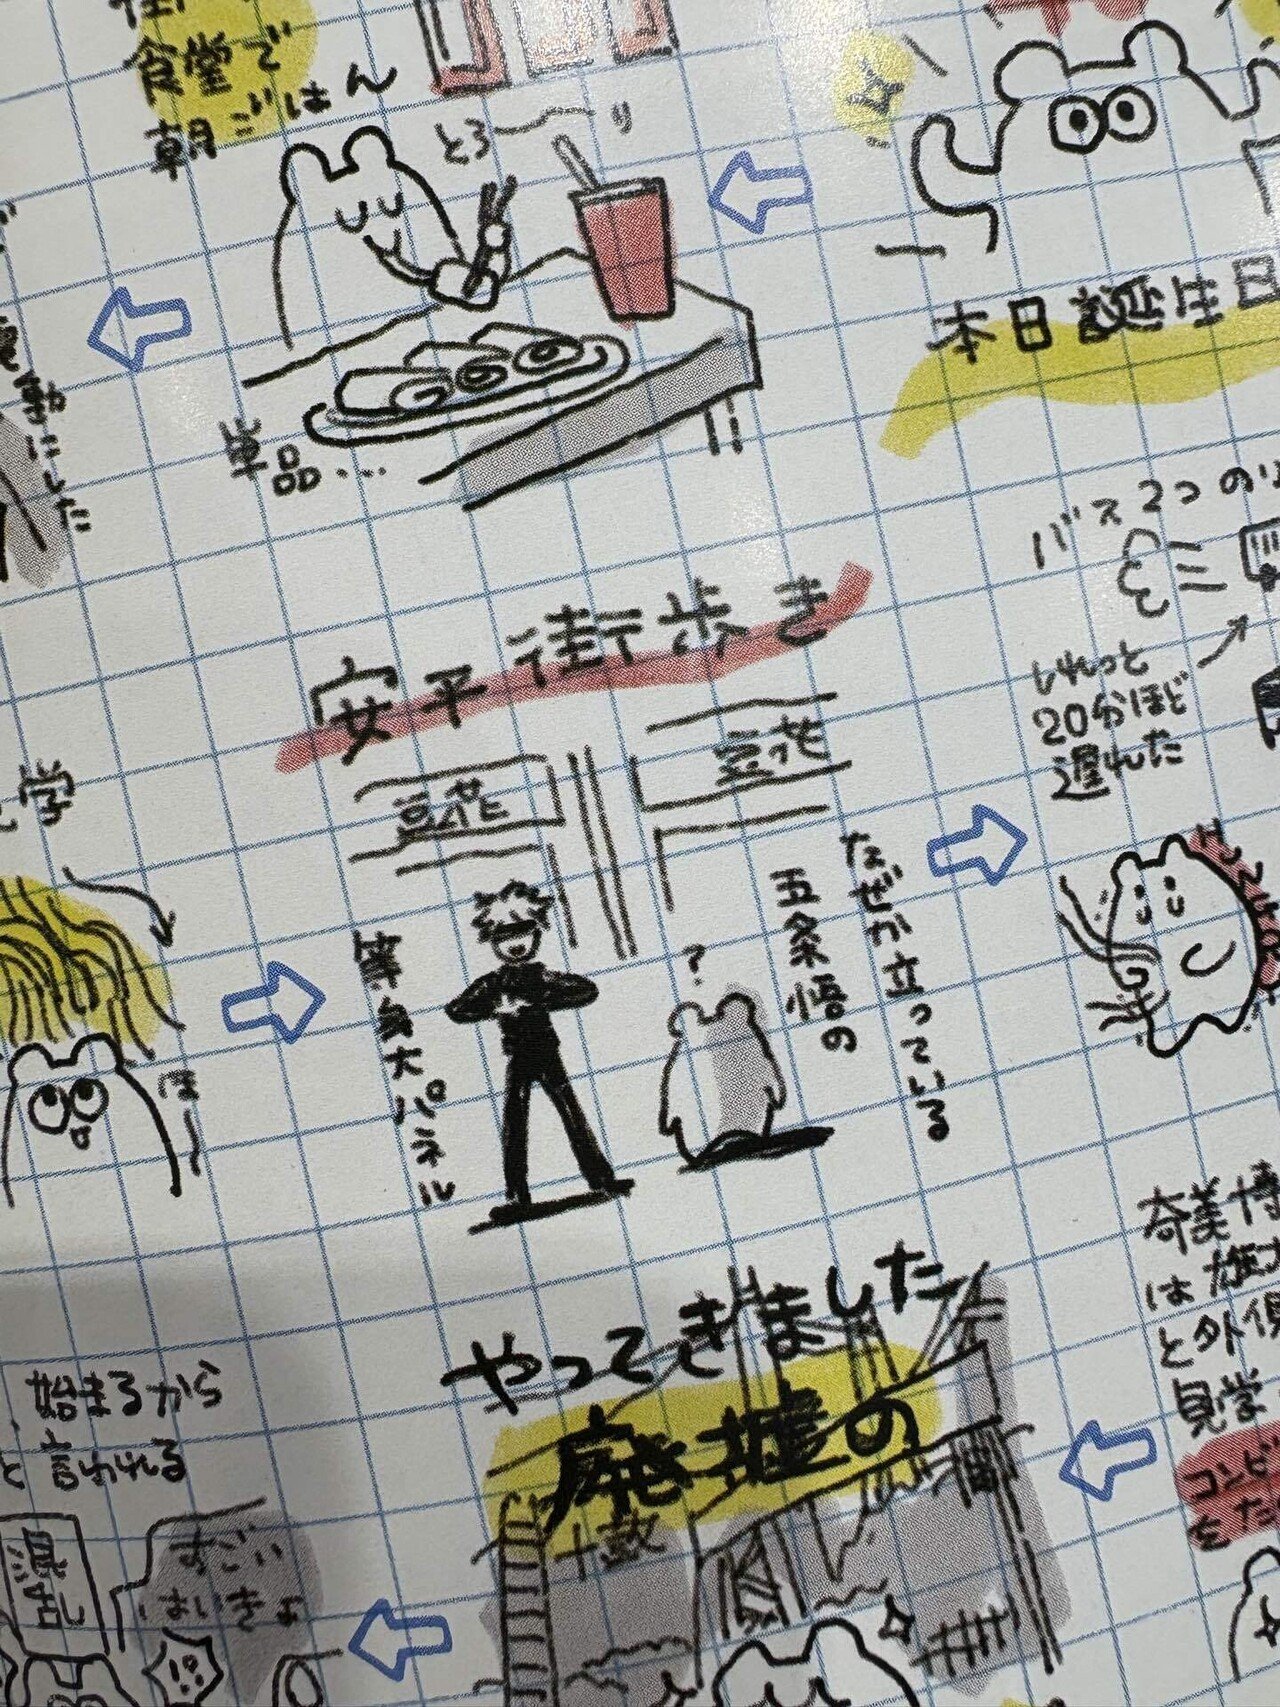 食堂で
朝ごはん
とろ〜り
単品…
本日誕生日
動にした
バス2つの
しれっと
20分ほど
遅れた
安平街歩き
豆花
豆花
なぜか立っている
五条悟の
等身大パネル
?
学
ほー
やってきました
廃墟の
奇美博
は
と外
見学
コンビ
をた
始まるから
と言われる
すごい
はいきょ